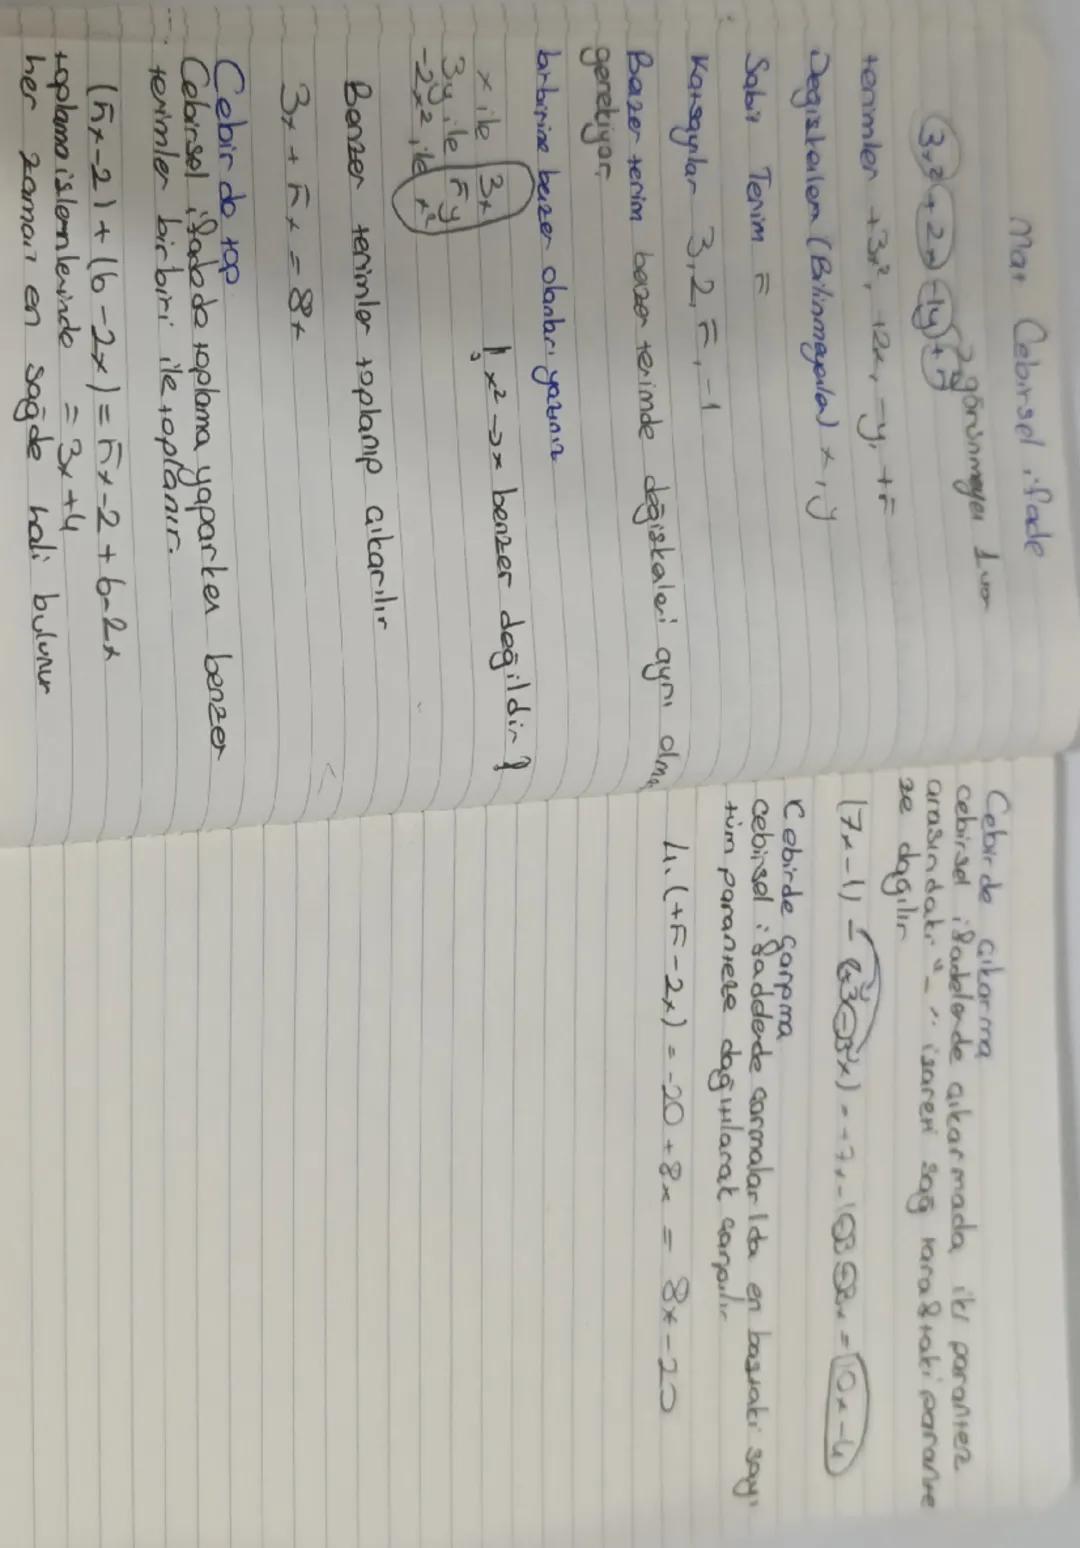 Mat Cebirsel ifade
görünmeyen 1 var
3x² + 2x - 1y + 5
terimler +3x², +2x, -y, +5
Değişkenlem (Bilinmeyenler) x, y
Sabit Terim 5
Katsayılar 3, 2, 5, -1
Bezer terim bezer terimde değişkaleri aynı olma
gerekiyor.
birbirine bezer olanları yazınız
x ile 3x
3y ile 5y
-2x², ile x²
! x² -> x benzer değildir !
Benzer terimler toplanıp çıkarılır
3x + 5x = 8x
Cebir de top
Cebirsel ifade de toplama yaparken benzer
terimler birbiri ile toplanır.
(5x-2) + (6-2x) = 5x-2+6-2x
toplama islemlerinde = 3x+4
her zaman en sağde hali bulunur
Cebir de çıkarma
cebirsel ifadelerde çıkarmada iki parantez
arasındaki "-" isareti sağ taraftaki parante
ze dağılır
(7x-1) - (+3-3x) = +7x-1-3+3x = 10x-4
Cebirde çarpma
cebirsel ifadelerde çarmalarlda en baştaki sayı
tüm paranteze dağıtılarak çarpılır
4.(+5-2x) = -20+8x = 8x-20